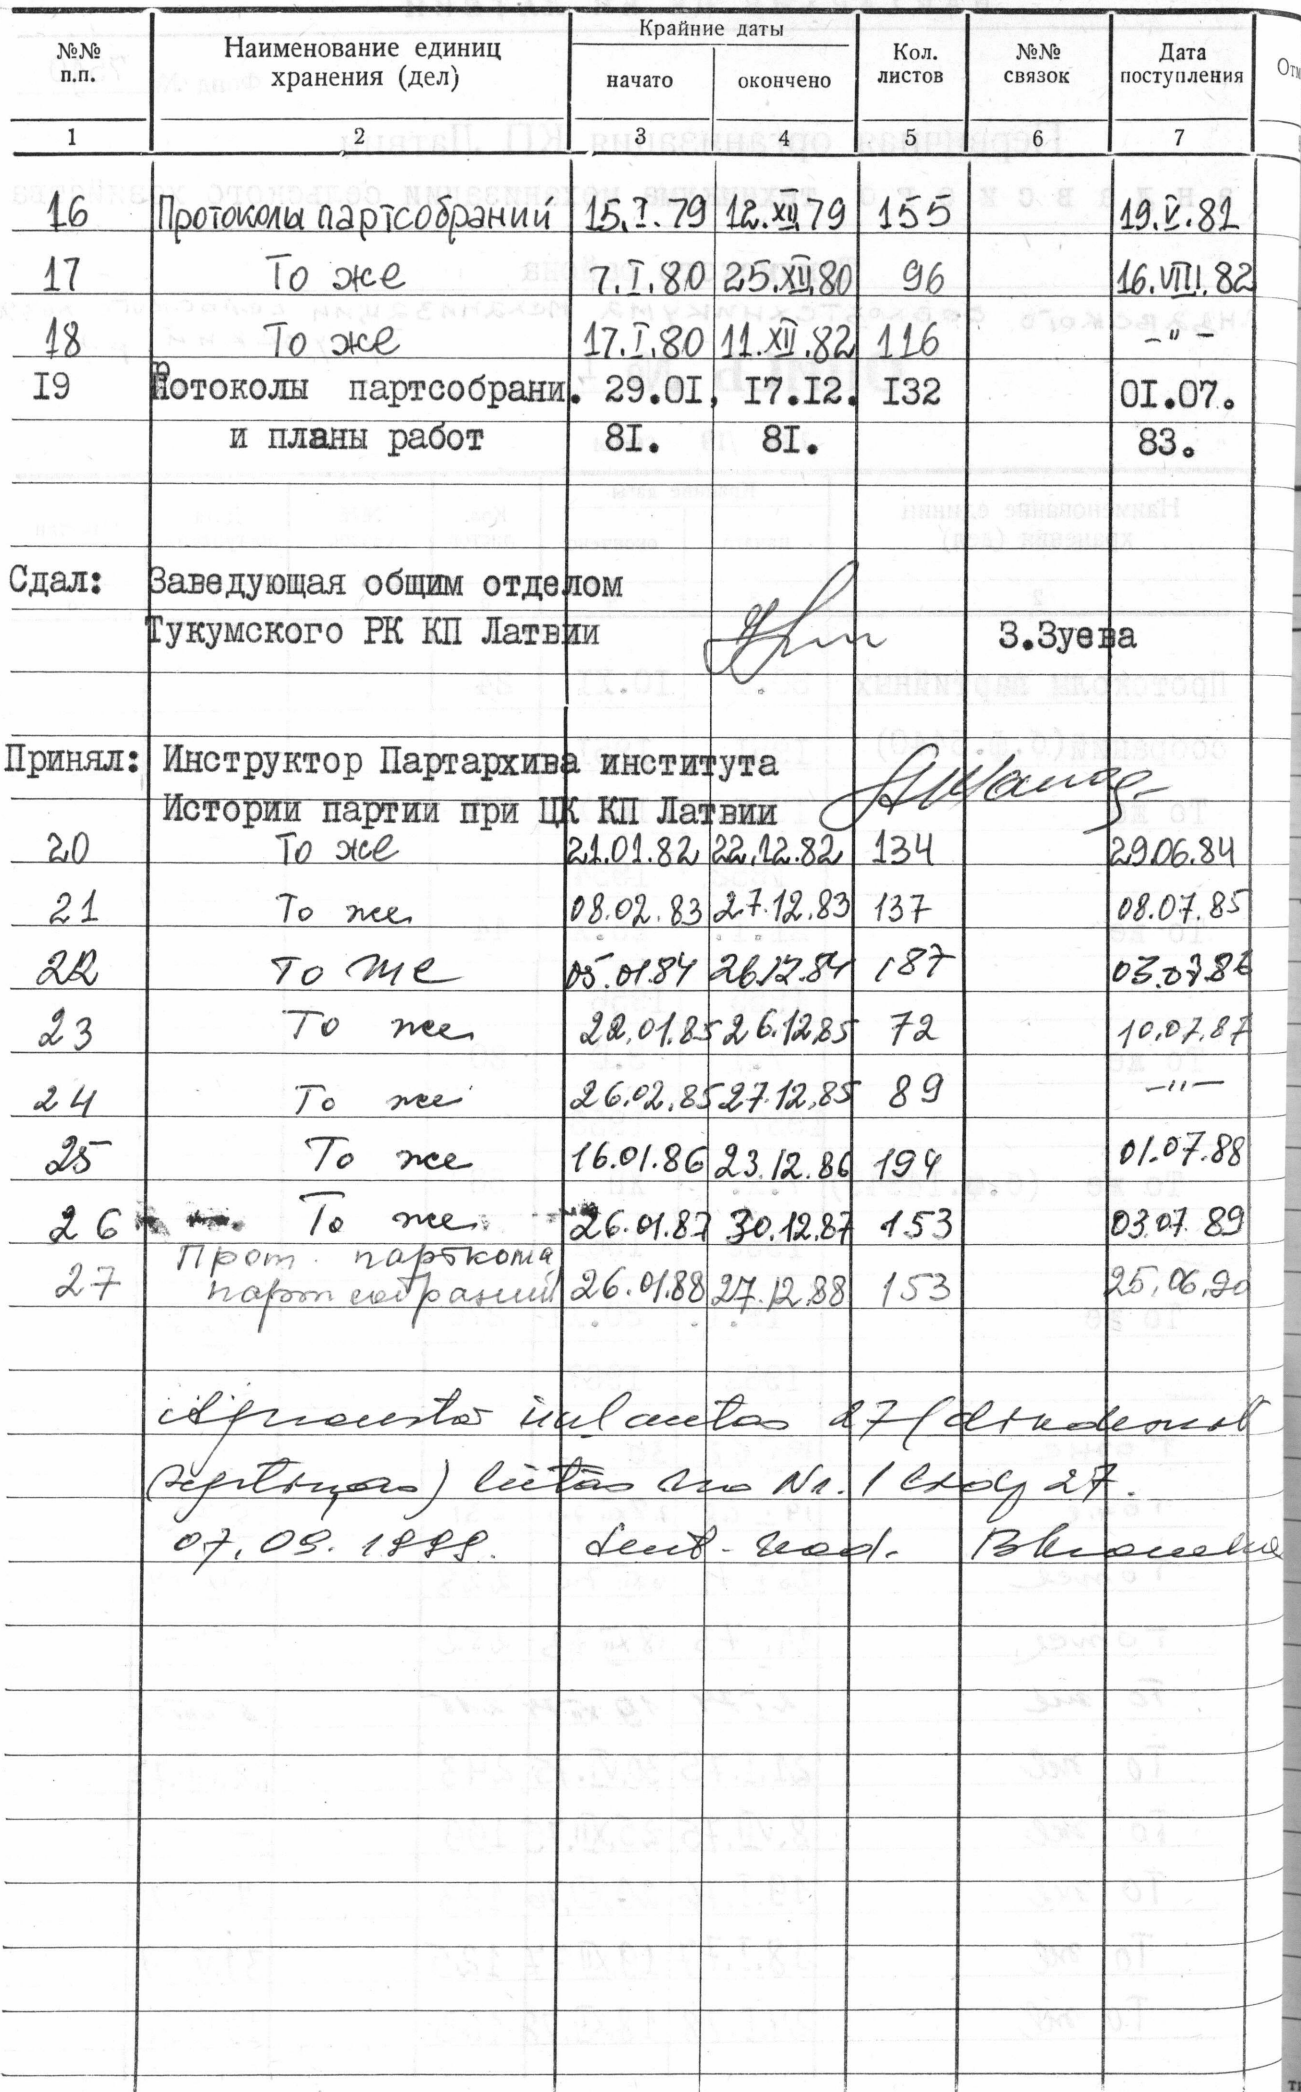 №№ п.п. Наименование единиц хранения (дел) Крайние даты начато окончено Кол. листов №№ связок Дата поступления
1 2 3 4 5 6 7
16 Протоколы партсобраний 15.I.79 12.XII.79 155 19.V.81
17 То же 7.I.80 25.XII.80 96 16.VIII.82
18 То же 17.I.80 11.XII.82 116 -"-
I9 Ротоколы партсобрани. 29.0I. 17.12. I32 0I.07.
и планы работ 8I. 8I. 83.
Сдал: Заведующая общим отделом
Тукумского РК КП Латвии З.Зуева
Принял: Инструктор Партархива института
Истории партии при ЦК КП Латвии
20 То же 21.01.82 22.12.82 134 29.06.84
21 То же 08.02.83 27.12.83 137 08.07.85
22 То же 05.01.84 26.12.84 187 03.07.86
23 То же 22.01.85 26.12.85 72 10.07.87
24 То же 26.02.85 27.12.85 89 -"-
25 То же 16.01.86 23.12.86 194 01.07.88
26 То же 26.01.87 30.12.87 153 03.07.89
Прот. парткома
27 партсобраний 26.01.88 27.12.88 153 25.06.90
27
lietas no Nr. 1 līdz 27.
07.09.1999.